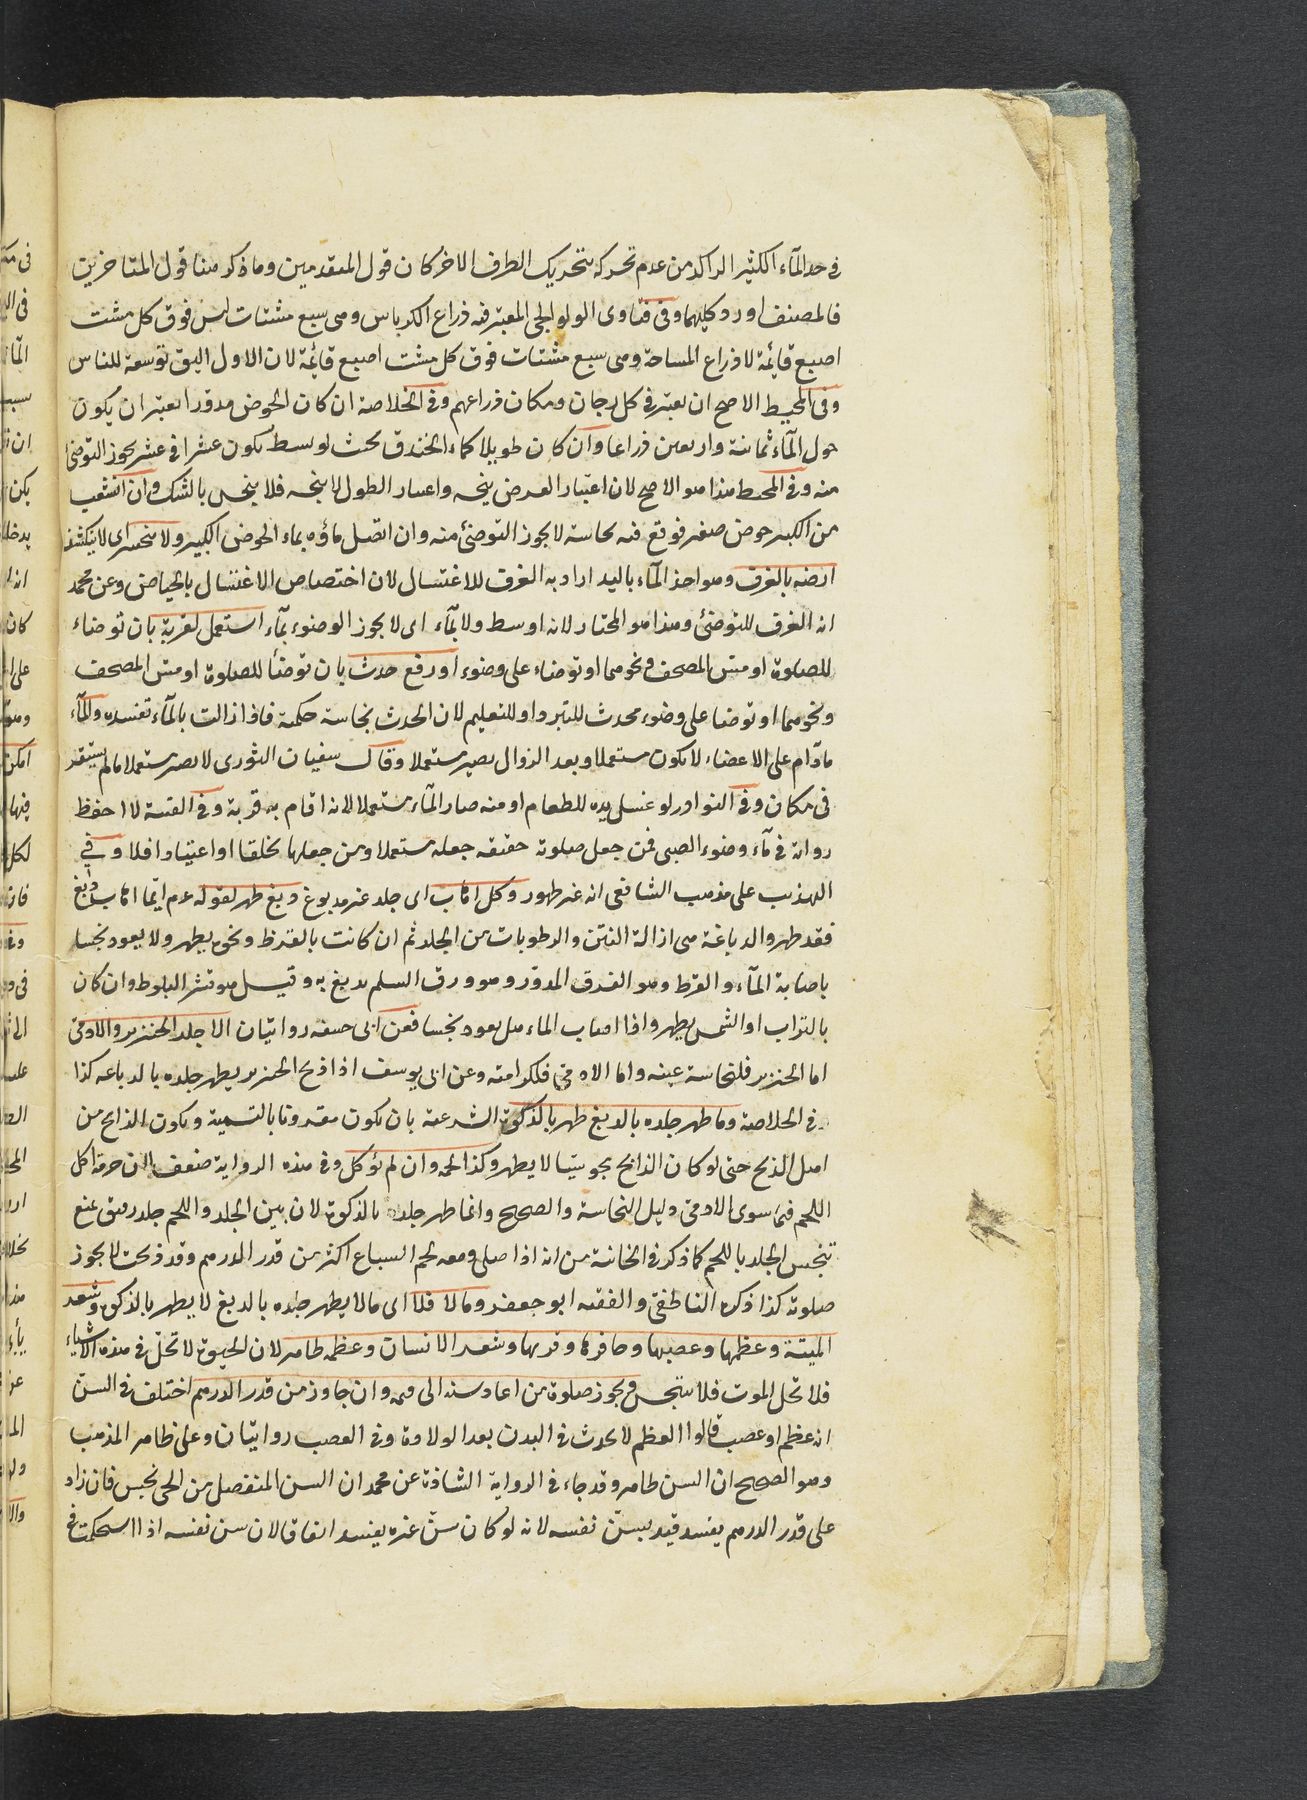 في حد المآء الكثير الراكد من عدم تحركه بتحريك الطرف الاخر كان قول المتقدمين وما ذكر هنا قول المتاخرين
فالمصنف اورد كليهما وفى فتاوى الولوالجى المعتبر فيه ذراع الكرباس وهى سبع مشتات ليس فوق كل مشت
اصبع قائمة لا ذراع المساحة وهى سبع مشتات فوق كل مشت اصبع قائمة لان الاول اليق توسعة للناس
وفى المحيط الاصح ان يعتبر فى كل زمان ومكان ذراعهم وفى الخلاصة ان كان الحوض مدورا يعتبر ان يكون
حول المآء ثمانية واربعين ذراعا وان كان طويلا كماء الخندق بحيث لو بسط يكون عشرا فى عشر يجوز التوضئ
منه وفى المحيط هذا هو الاصح لان اعتبار العرض ينجسه واعتبار الطول لا ينجسه فلا ينجس بالشك وان انشعب
من الكبير حوض صغير فوقع فيه نجاسة لا يجوز التوضئ منه وان اتصل ماؤه بماء الحوض الكبير ولا ينحسر اى لا ينكشف
ارضه بالغرف وهو اخذ المآء باليد اراد به الغرف للاغتسال لان اختصاص الاغتسال بالحياض وعن محمد
انه الغرف للتوضئ وهذا هو المختار لانه اوسط ولا بمآء اى لا يجوز الوضوء بمآء استعمل لقربة بان توضاء
للصلوة او مس المصحف ونحوهما او توضاء على وضوء او رفع حدث بان توضأ للصلوة او مس المصحف
ونحوهما او توضا على وضوء محدث للتبرد او للتعليم لان الحدث نجاسة حكمية فاذا زالت بالمآء تفسده والمآء
مادام على الاعضاء لا يكون مستعملا وبعد الزوال يصير مستعملا وقال سفيان الثورى لا يصير مستعملا مالم يستقر
فى مكان وفى النوادر لو غسل يده للطعام او منه صار المآء مستعملا لانه اقام به قربة وفى القنية لا احفظ
رواية فى مآء وضوء الصبى فمن جعل صلوته حقيقة جعله مستعملا ومن جعلها تخلقا او اعتيادا فلا وفي
التهذيب على مذهب الشافعى انه غير طهور وكل اهاب اى جلد غير مدبوغ دبغ طهر لقوله عم ايما اهاب دبغ
فقد طهر والدباغة هى ازالة النتن والرطوبات من الجلد ثم ان كانت بالقرظ ونحوه يطهر ولا يعود نجسا
باصابة المآء والقرظ وهو الغرق المدور وهو ورق السلم يدبغ به وقيل هو قشر البلوط وان كان
بالتراب او الشمس يطهر واذا اصاب الماء هل يعود نجسا فعن ابى حنيفه روايتان الا جلد الخنزير والادمي
اما الخنزير فلنجاسة عينه واما الادمى فلكرامته وعن ابى يوسف اذا ذبح الخنزير يطهر جلده بالدباغة كذا
فى الخلاصة وما طهر جلده بالدبغ طهر بالذكوة الشرعية بان يكون مقرونا بالتسمية ويكون الذابح من
اهل الذبح حتى لو كان الذابح مجوسيا لا يطهر وكذا لحمه وان لم يؤكل وفى هذه الرواية ضعف لان حرمة اكل
اللحم فيما سوى الادمى دليل النجاسة والصحيح وانما طهر جلده بالذكوة لان بين الجلد واللحم جلد رقيق يمنع
تنجس الجلد باللحم كما ذكر فى الخانية من انه اذا صلى ومعه لحم السباع اكثر من قدر الدرهم وقد ذبحت لا يجوز
صلوته كذا ذكره الناطفى والفقيه ابو جعفر وما لا فلا اى ما لا يطهر جلده بالدبغ لا يطهر بالذكوة وشعر
الميتة وعظمها وعصبها وحافرها وقرنها وشعر الانسان وعظمه طاهر لان الحيوة لا تحل فى هذه الاشياء
فلا تحل الموت فلا يتنجس ويجوز صلوة من اعاد سنه الى فمه وان جاوز من قدر الدرهم اختلف فى السن
انه عظم او عصب قالوا العظم لا يحدث فى البدن بعد الولادة وفى العصب روايتان وعلى ظاهر المذهب
وهو الصحيح ان السن طاهر وقد جاء فى الرواية الشاذة عن محمد ان السن المنفصل من الحى نجس فان زاد
على قدر الدرهم يفسد قيد بسن نفسه لانه لو كان سن غيره يفسد اتفاقا لان سن نفسه اذا استحكمت فى